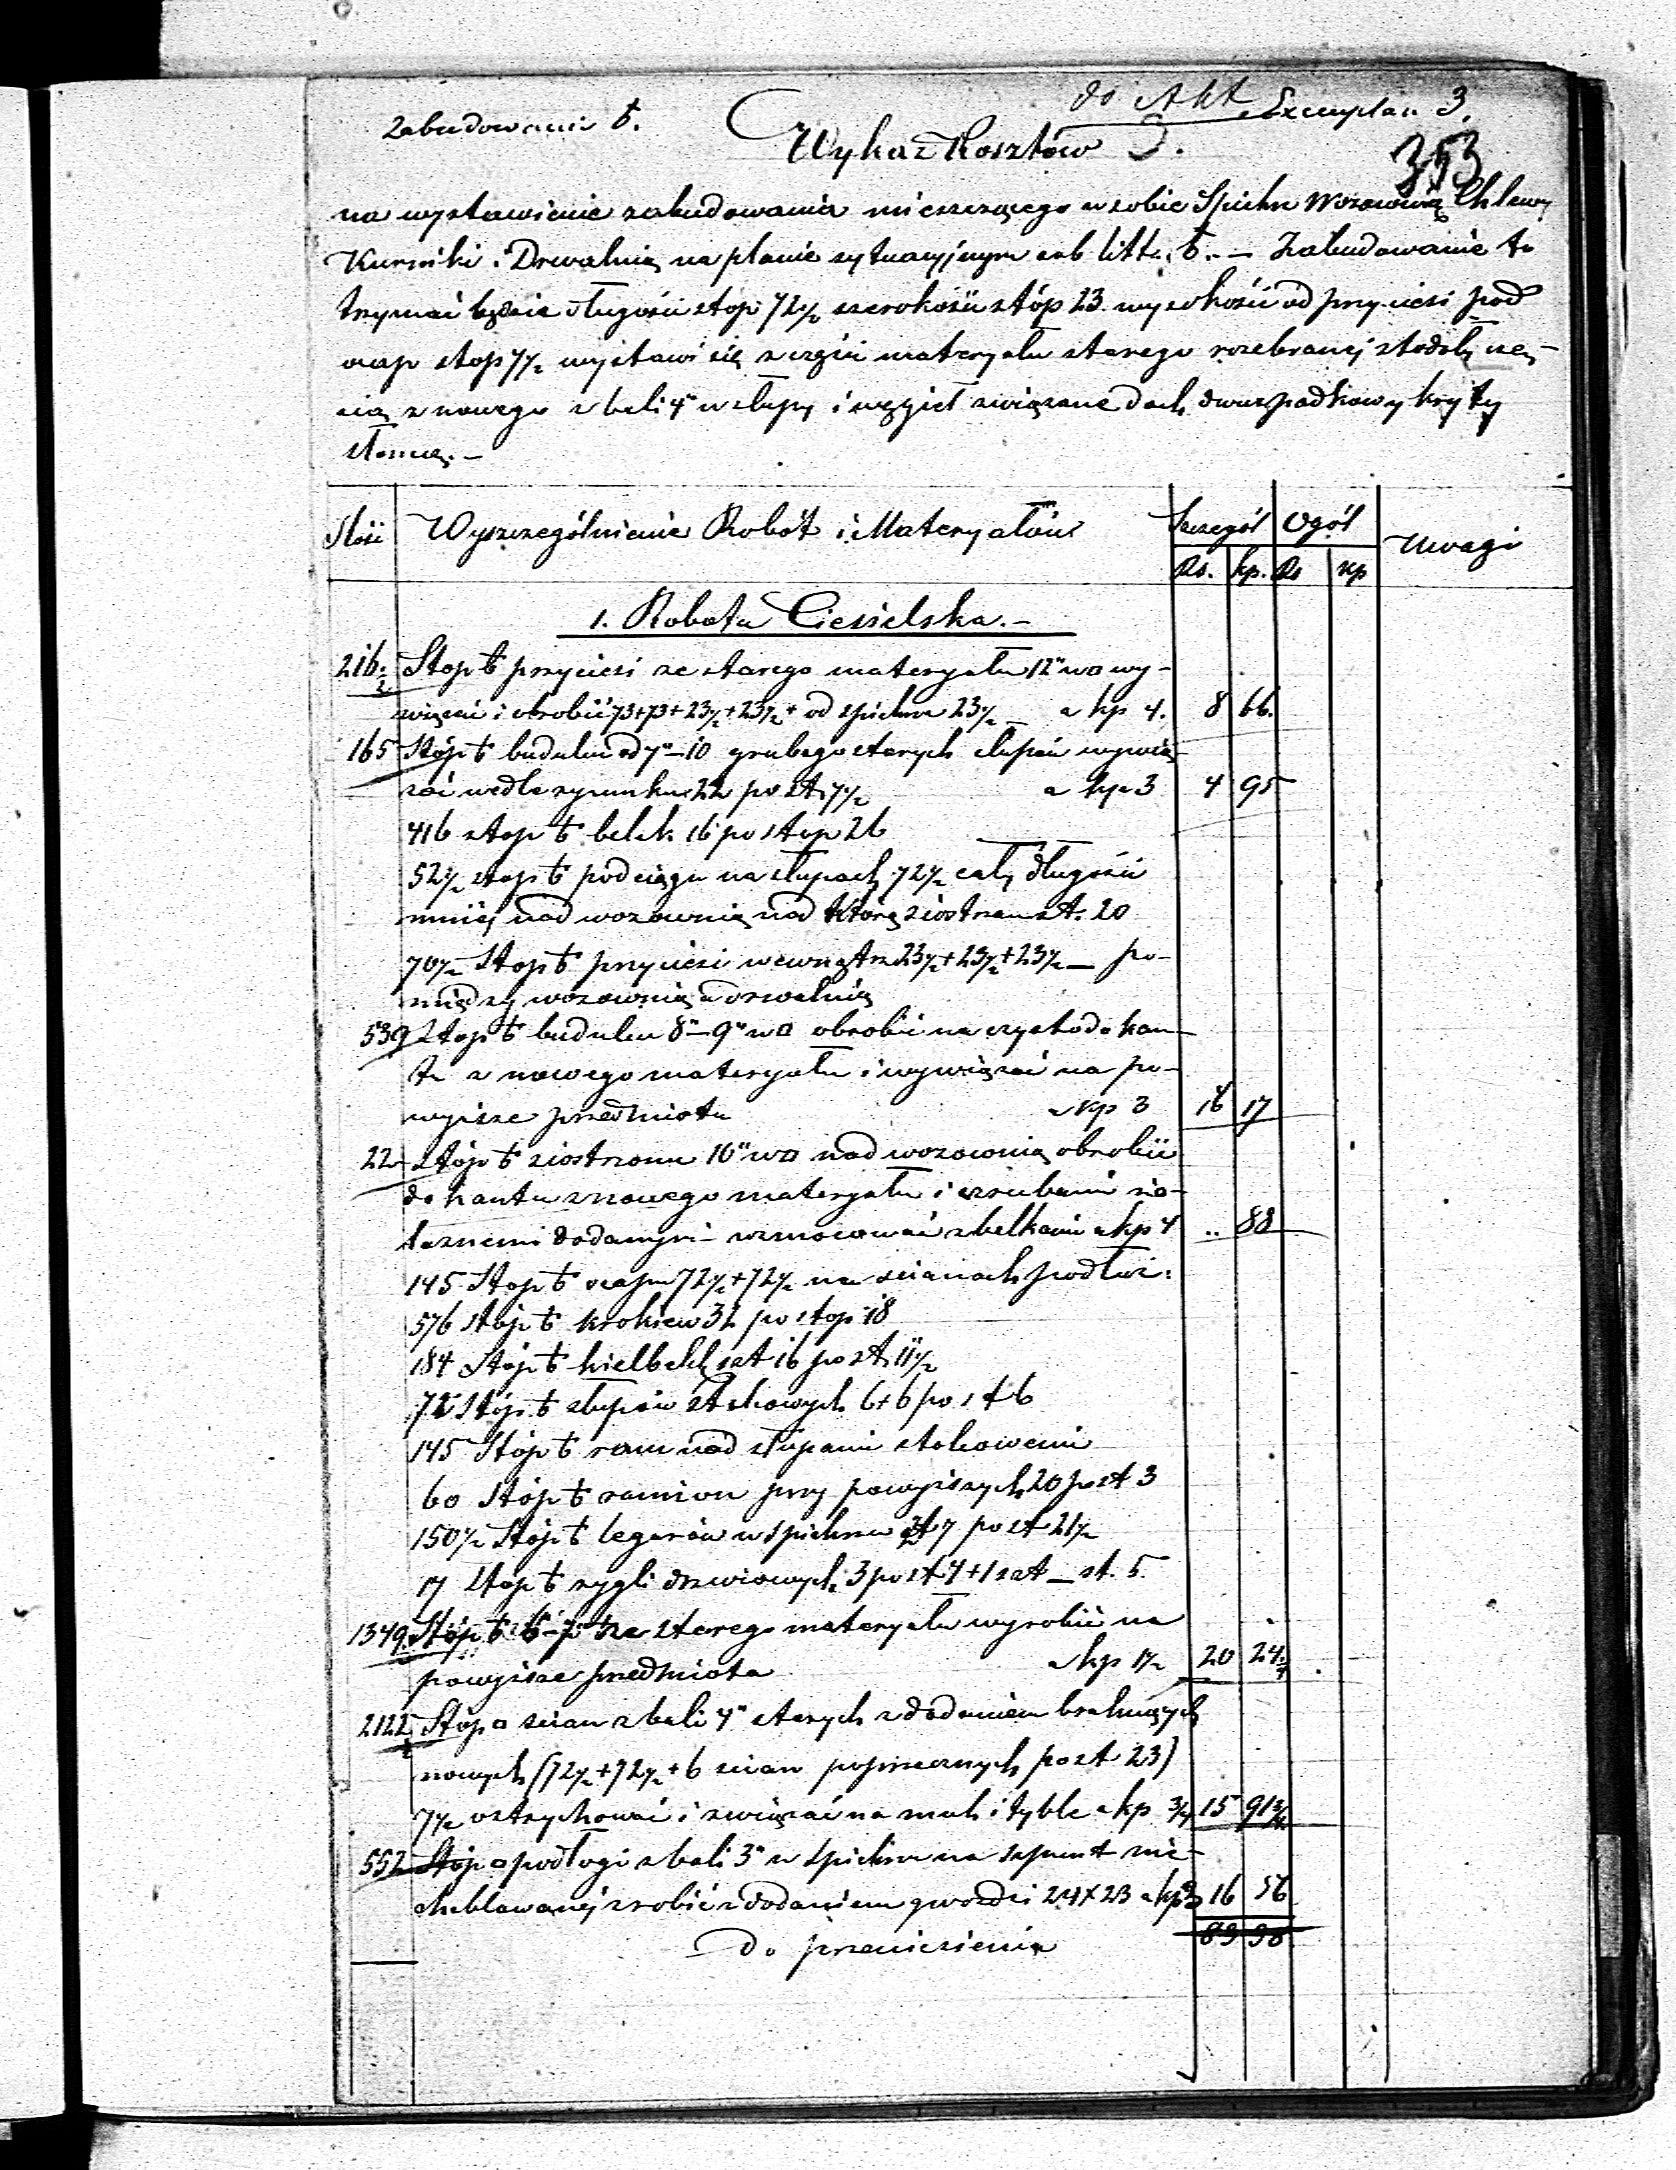 do Akt Exemplar 3.
Zabudowanie b.
Wykaz Kosztów 3.
353
na wystawienie zabudowania mieszczącego w sobie Spichrz Wozownią Chlewy
Kurniki i Drwalnią na planie sytuacyjnym sub litt. b. — Zabudowanie to
trzymać będzie długości stóp 72½ szerokości stóp 23 wysokości od przyciesi pod
oczap stop 7½ wystawi się z części materyału starego rozebranej stodoły czę-
ścią z nowego z bali 4" w słupy i węgieł związane dach dwuspadkowy kryty
słomą. —
Ilość Wyszczególnienie Robót i Materyałów Szczegół Ogół Uwagi
Rs. kp. Rs kp
1. Robota Ciesielska. —
216½ Stop b przyciesi ze starego materyału 12" w □ wy-
wiązać i obrobić 73+73+23½+23½+ od spichrza 23½ — a kp 4. 8 66.
165 Stóp b budulcu od 7"—10 grubego starych słupów wywią-
zać wedle rysunku 22 po st. 7½ a kp 3 4 95
416 stop b belek 16 po stop 26
52½ stop b podciągu na słupach 72½ całej długości
mniej nad wozownią nad którą siostrzan st. 20
70½ Stop b przyciesi wewnątrz 23½+23½+23½ — po-
między wozownią a drwalnią
539 Stop b budulcu 8"—9" w □ obrobić na czysto do kan-
tu z nowego materyału i wywiązać na po-
wyższe przedmiota a kp 3 16 17
22 Stóp b siostrzanu 10" w □ nad wozownią obrobić
do kantu z nowego materyału i szrubami że-
laznemi dodanymi wzmocować z belkami a kp 4 .. 88
145 Stop b oczapu 72½+72½ na ścianach podłuż:
576 Stóp b krokiew 32 po stop 18
184 Stóp b kielbelk szt 16 po st. 11½
72 Stóp b słupów stolcowych 6+6 po st 6
145 Stóp b ram nad słupami stolcowemi
60 Stóp b ramion przy powyższych 20 po st 3
150½ Stóp b legarów w spichrzu szt 7 po st 21½
17 Stop b rygli drzwiowych 3 po st 4 + 1 szt — st. 5.
1349½ Stóp b 6—7" ze starego materyału wyrobić na
powyższe przedmiota a kp 1½ 20 24¾
2122½ Stóp □ ścian z bali 4" starych z dodaniem brakujących
nowych (72½+72½+6 ścian poprzecznych po st 23)
7½ ostrychować i związać na mech i tyble a kp ¾ 15 91¾
552 Stóp □ podłogi z bali 3" w spichrzu na szpunt nie-
cheblowanej zrobić z dodaniem gwoździ 24×23 a kp 3 16 56
Do przeniesienia 83 38